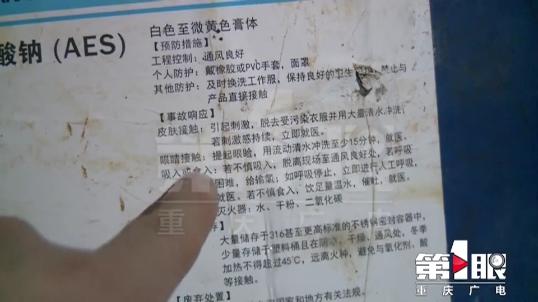 酸钠 (AES)
白色至微黄色膏体
【预防措施】
工程控制：通风良好
个人防护：戴橡胶或PVC手套，面罩
其他防护：及时换洗工作服，保持良好的卫生 禁止与
产品直接接触
【事故响应】
皮肤接触：引起刺激，脱去受污染衣服并用大量清水冲洗，
若刺激感持续，立即就医。
眼睛接触：提起眼睑，用流动清水冲洗至少15分钟，就医。
吸入或食入：若不慎吸入，脱离现场至通风良好处，若呼吸
困难，给输氧；如呼吸停止，立即进行人工呼吸，
就医。若不慎食入，饮足量温水，催吐，就医。
灭火器：水、干粉、二氧化碳
存】
大量储存于316甚至更高标准的不锈钢密封容器中，
少量存储于塑料桶且在阴 、干燥、通风处，冬季
加热不得超过45℃，远离火种，避免与氧化剂、酸
等接触。
【废弃处置】
国家和地方有关法规。
重庆广电
第1眼
重庆广电